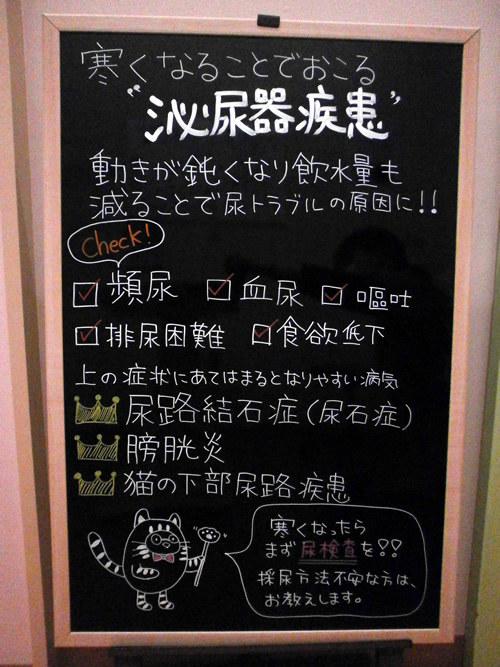 寒くなることでおこる
"泌尿器疾患"
動きが鈍くなり飲水量も
減ることで尿トラブルの原因に!!
Check!
頻尿 血尿 嘔吐
排尿困難 食欲低下
上の症状にあてはまるとなりやすい病気
尿路結石症(尿石症)
膀胱炎
猫の下部尿路疾患
寒くなったら
まず尿検査を!!
採尿方法不安な方は、
お教えします。